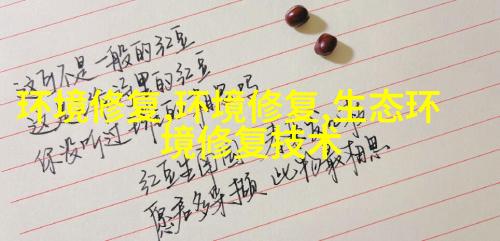 这可不是一般的红豆
这里的红豆
环境修复,环境修复,生态环
你没听过
境修复技术
红豆生南国
愿君多采撷 此物最相思